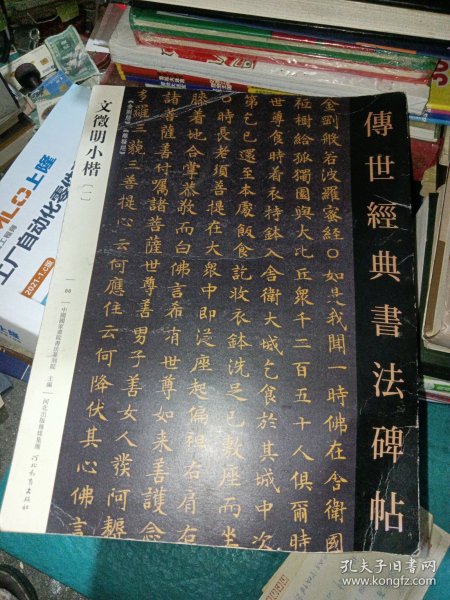 傳世經典書法碑帖
金剛般若波羅蜜經○如是我聞一時佛在舍衛國
祇樹給孤獨園與大比丘衆千二百五十人俱爾時
世尊食時着衣持鉢入舍衛大城乞食於其城中次
第乞已還至本處飯食訖收衣鉢洗足已敷座而坐
○時長老須菩提在大衆中即從座起偏袒右肩右
膝着地合掌恭敬而白佛言希有世尊如來善護念
諸菩薩善付囑諸菩薩世尊善男子善女人發阿耨
羅三藐三菩提心云何應住云何降伏其心佛言
文徵明小楷(一)
66
中國國家畫院書法篆刻院 主編
河北出版傳媒集團
河北教育出版社
上隆
工厂自动化零
2021-1.0
孔夫子旧书网